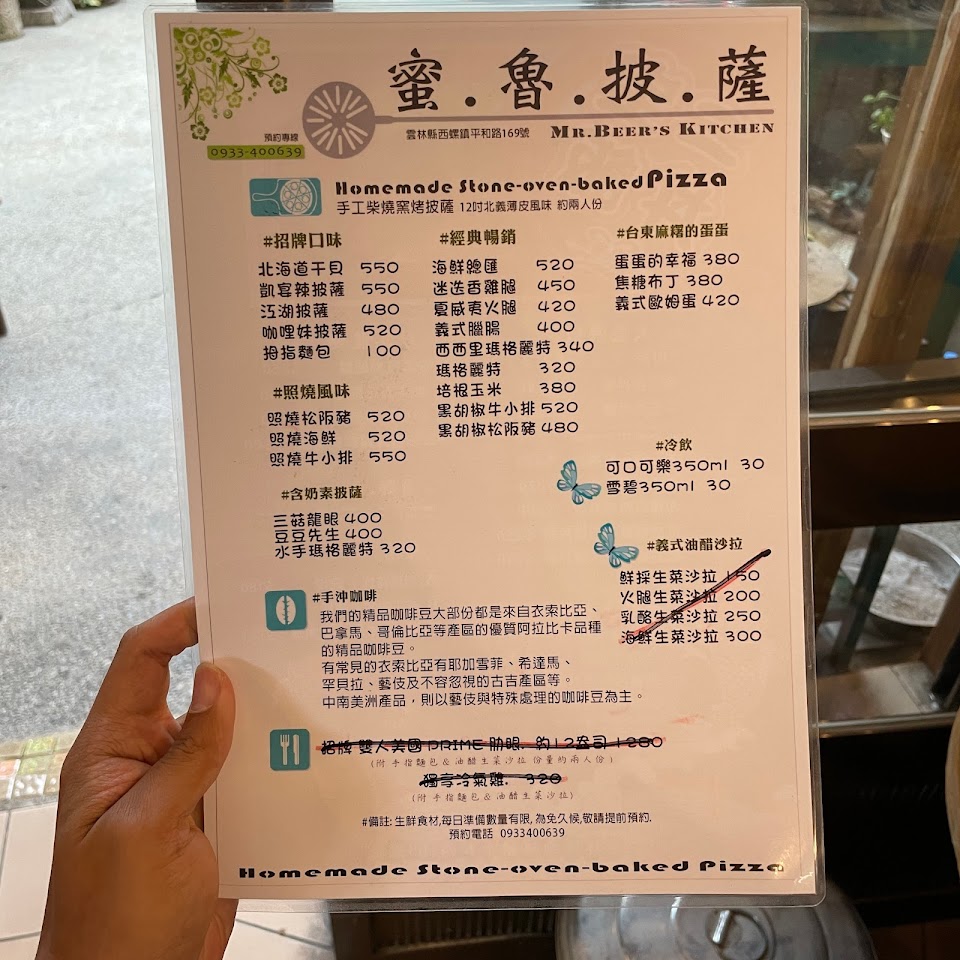 蜜.魯.披.薩
預約專線
0933-400639
雲林縣西螺鎮平和路169號 MR.BEER'S KITCHEN
Homemade Stone-oven-baked Pizza
手工柴燒窯烤披薩 12吋北義薄皮風味 約兩人份
#招牌口味
北海道干貝 550
凱宴辣披薩 550
江湖披薩 480
咖哩妹披薩 520
拇指麵包 100
#照燒風味
照燒松阪豬 520
照燒海鮮 520
照燒牛小排 550
#含奶素披薩
三菇龍眼 400
豆豆先生 400
水手瑪格麗特 320
#經典暢銷
海鮮總匯 520
迷迭香雞腿 450
夏威夷火腿 420
義式臘腸 400
西西里瑪格麗特 340
瑪格麗特 320
培根玉米 380
黑胡椒牛小排 520
黑胡椒松阪豬 480
#台東麻糬的蛋蛋
蛋蛋的幸福 380
焦糖布丁 380
義式歐姆蛋 420
#冷飲
可口可樂350ml 30
雪碧350ml 30
#義式油醋沙拉
鮮採生菜沙拉 150
火腿生菜沙拉 200
乳酪生菜沙拉 250
海鮮生菜沙拉 300
#手沖咖啡
我們的精品咖啡豆大部份都是來自衣索比亞、
巴拿馬、哥倫比亞等產區的優質阿拉比卡品種
的精品咖啡豆。
有常見的衣索比亞有耶加雪菲、希達馬、
罕貝拉、藝伎及不容忽視的古吉產區等。
中南美洲產品，則以藝伎與特殊處理的咖啡豆為主。
招牌 雙人美國 PRIME 肋眼. 約12盎司 1280
(附 手指麵包 & 油醋生菜沙拉 份量約兩人份)
獨享冷氣雞. 320
(附 手指麵包 & 油醋生菜沙拉)
#備註: 生鮮食材,每日準備數量有限, 為免久候,敬請提前預約.
預約電話 0933400639
Homemade Stone-oven-baked Pizza